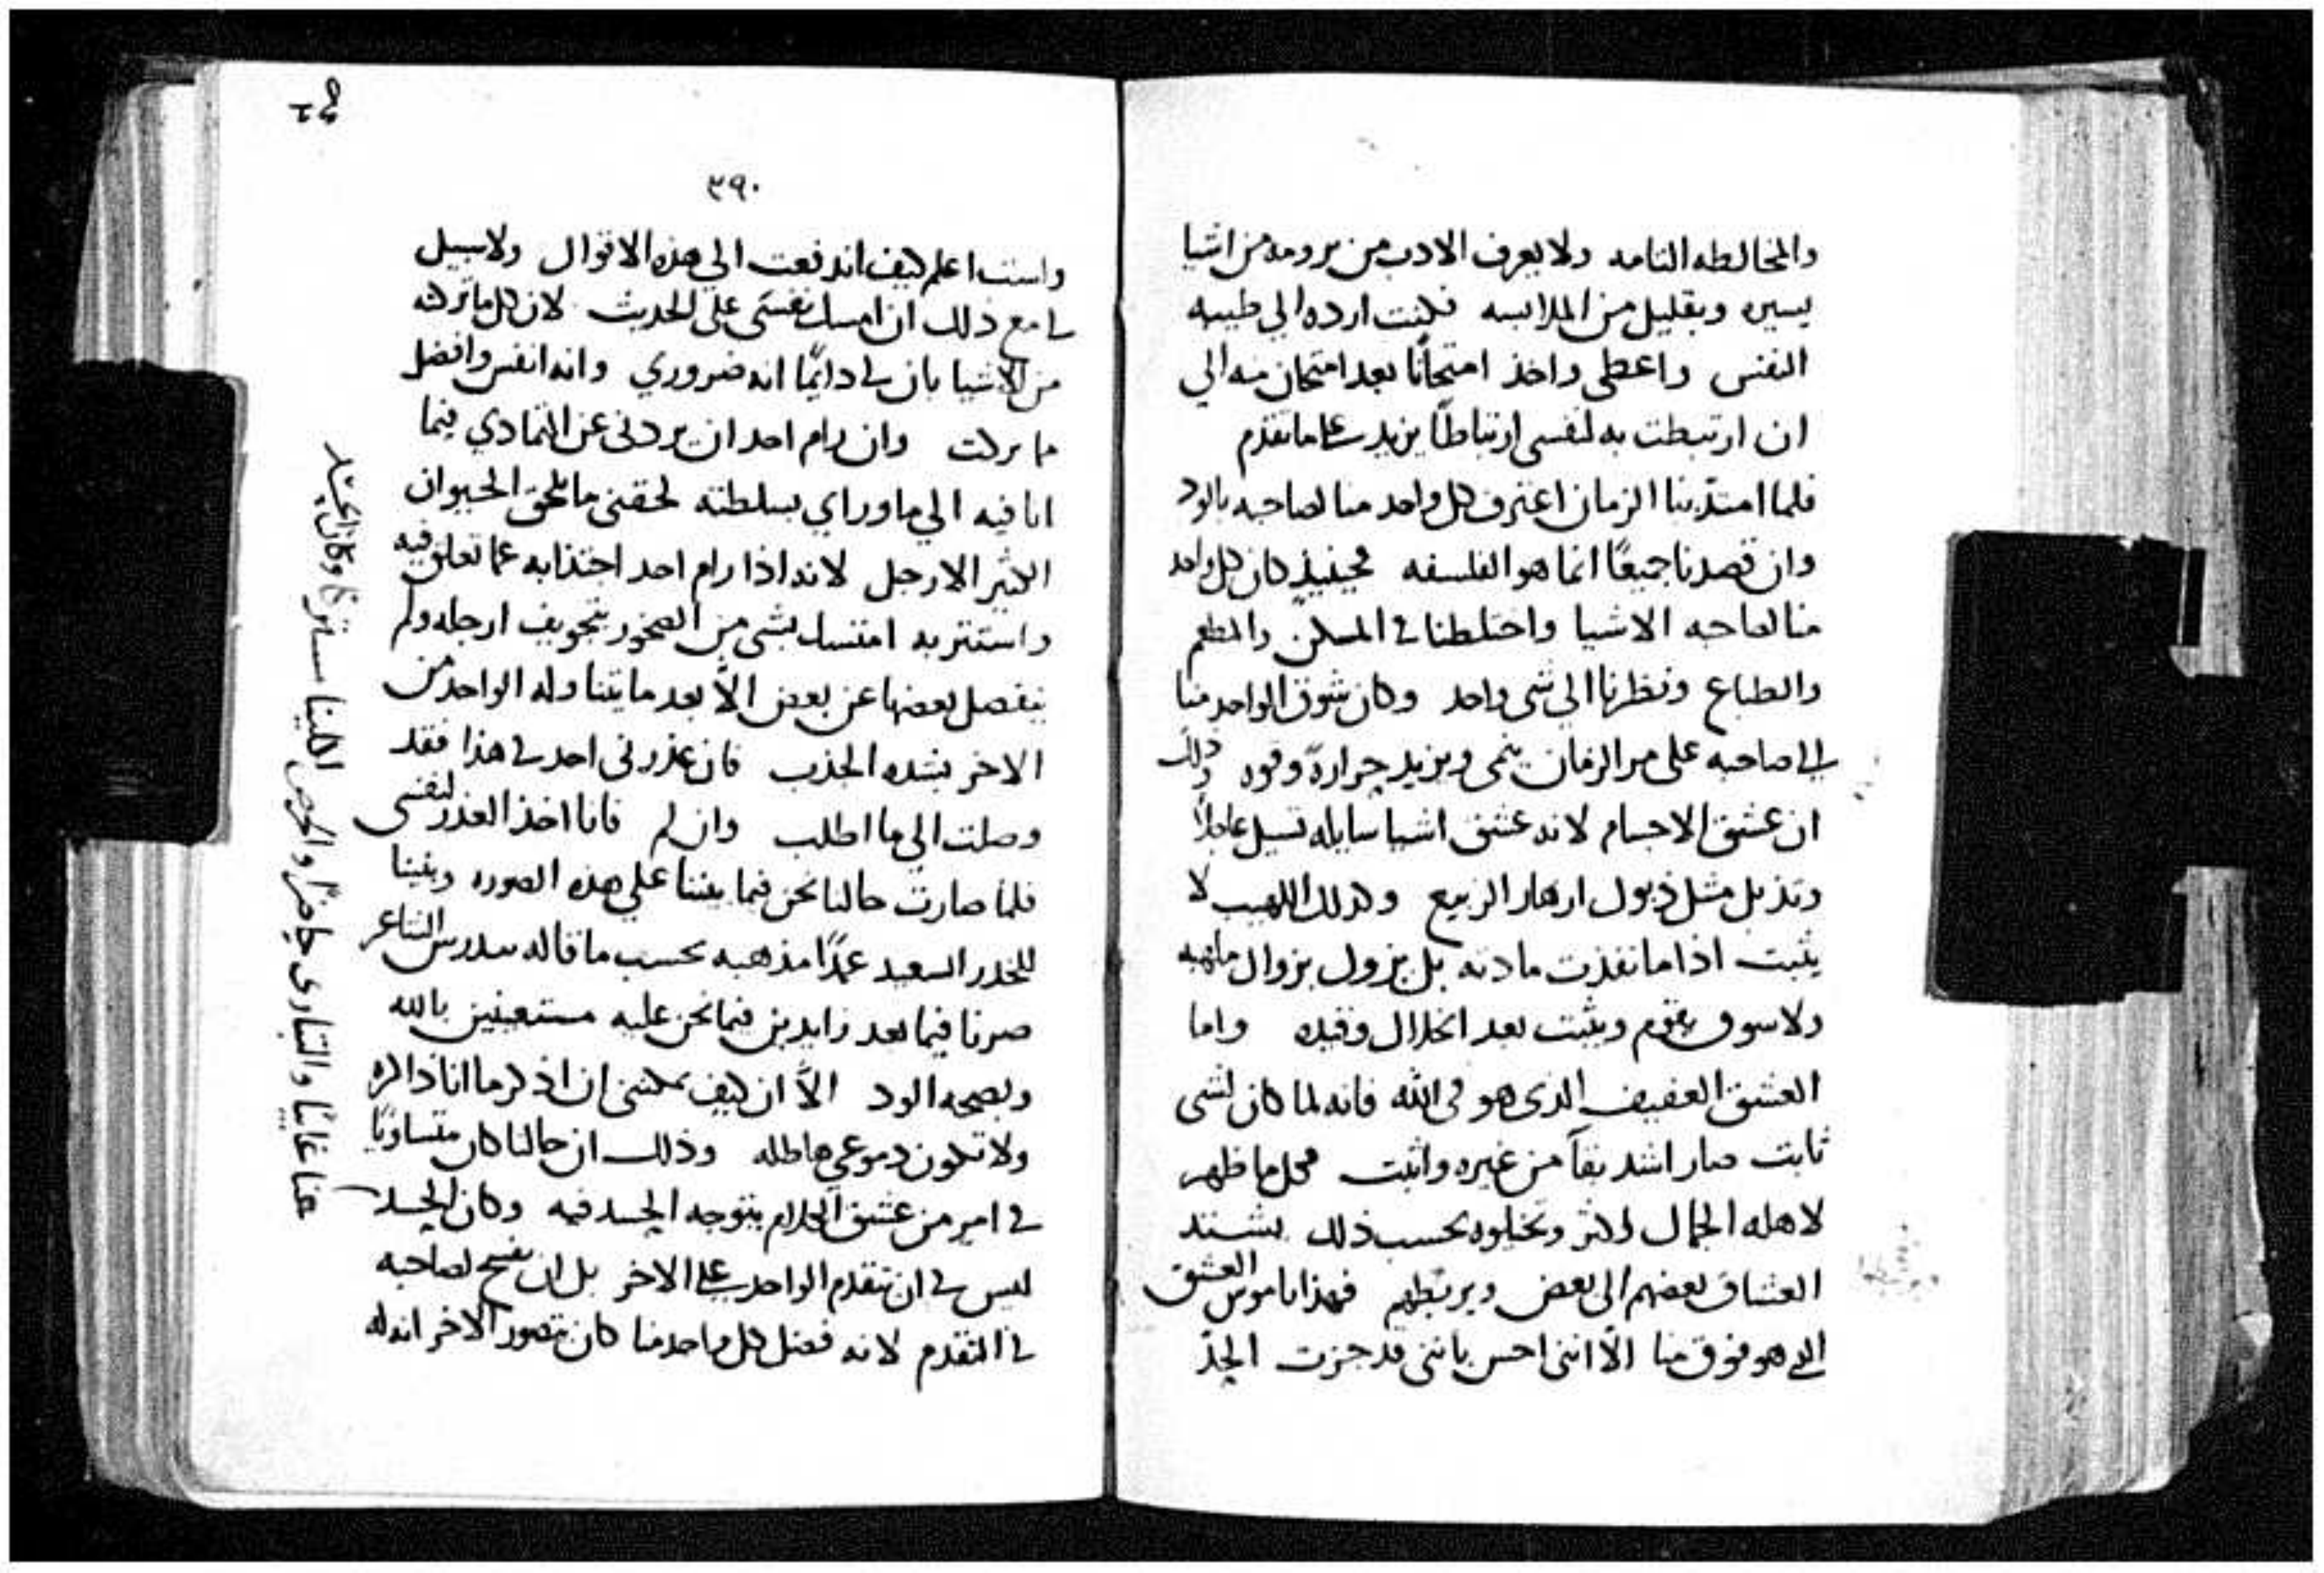 والمخالطه التامه ولا يعرف الادب من يرومه من اشيا
يسيره وبقليل من الملابسه فكنت ارده الي طيبه
النفس واعطي واخذ امتحانًا بعد امتحان منه الي
ان ارتبطت به لنفسي ارتباطًا يزيد علي ما تقدم
فلما امتدّ بنا الزمان اعترف كل واحد منا لصاحبه بالود
وان قصدنا جميعًا انما هو الفلسفه فحينيذٍ كان كل واحد
منا لصاحبه الاشيا واختلطنا في المسكن والمطعم
والطباع ونظرنا الي شي واحد وكان شوق الواحد منا
الي صاحبه علي مر الزمان ينمي ويزيد حرارةً وقوه وذلك
ان عشق الاجسام لانه عشق اشيا سايله تسيل عاجلاً
وتذبل مثل ذبول ازهار الربيع وكذلك اللهيب لا
يثبت اذا ما نفذت مادته بل يزول بزوال ملهبه
ولا سوق يقوم ويثبت بعد انحلال وقيده واما
العشق العفيف الذي هو في الله فانه لما كان لشي
ثابت صار اشد بقآ من غيره واثبت فكل ما ظهر
لاهله الجمال اكثر وتخيلوه بحسب ذلك يشتد
العشاق بعضهم الي بعض ويربطهم فهذا ناموس العشق
الذي هو فوق منا الاّ انني احس بانني قد جزت الحدّ
٣٩٠
ولست اعلم كيف اندفعت الي هذه الاقوال ولا سبيل
لي مع ذلك ان امسك نفسي علي الحديث لان كل ما تركته
من الاشيا بان لي دايمًا انه ضروري وانه انفس وافضل
مما تركت وان رام احد ان يردني عن التمادي فيما
انا فيه الي ما وراي بسلطته لحقني ما يلحق الحيوان
الكثير الارجل لانه اذا رام احد اجتذابه عما تعلق فيه
واستتر به امتسك بشي من الصخور بتجويف ارجله ولم
ينفصل بعضها عن بعض الاّ بعد ما يتناوله الواحد من
الاخر بشده الجذب فان عذرني احد في هذا فقد
وصلت الي ما اطلب وان لم فانا اخذ العذر لنفسي
فلما صارت حالنا نحن فيما بيننا علي هذه الصوره وبنينا
للخدر السعيد عمدًا مذهبه بحسب ما قاله بندرس الشاعر
صرنا فيما بعد زايدين فيما نحن عليه مستعينين بالله
وبصحه الود الاّ ان كيف يمكنني ان اذكر ما انا ذاكره
ولا تكون دموعي هاطله وذلك ان حالنا كان متساويًا
في امر من عشق الكلام يتوجه الحسد فيه وكان الحسد
ليس في ان يتقدم الواحد علي الاخر بل ان يفسح لصاحبه
في التقدم لانه فضل كل واحد منا كان يتصور الاخر انه له
عنا غايبًا والتباري حاضرًا والحرص الكلينا مشتركًا وكان الحسد